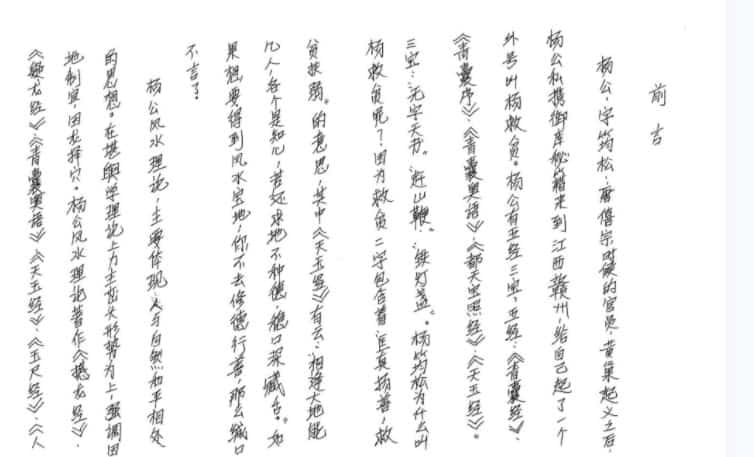 前言
杨公,字筠松,唐僖宗时候的官员,黄巢起义之后,
杨公私携御库秘籍来到江西赣州,给自己起了一个
外号叫杨救贫。杨公有五经三宝,五经:《青囊经》、
《青囊序》、《青囊奥语》、《都天宝照经》、《天玉经》。
三宝:“无字天书。赶山鞭。绿灯盏”。杨筠松为什么叫
杨救贫呢?因为救贫二字包含着“匡真扬善,救
贫扶弱。”的意思,其中《天玉经》有云:相逢大地能
几人,各个是知心,若还求地不种德,稳口深藏舌。如
果想要得到风水宝地,你不去修德行善,那么缄口
不言了。
杨公风水理论,主要体现人与自然和平相处
的思想。在堪舆学理论上力主峦头形势为上,强调因
地制宜,因龙择穴。杨公风水理论著作《撼龙经》、
《疑龙经》、《青囊奥语》、《天玉经》、《玉尺经》、《人